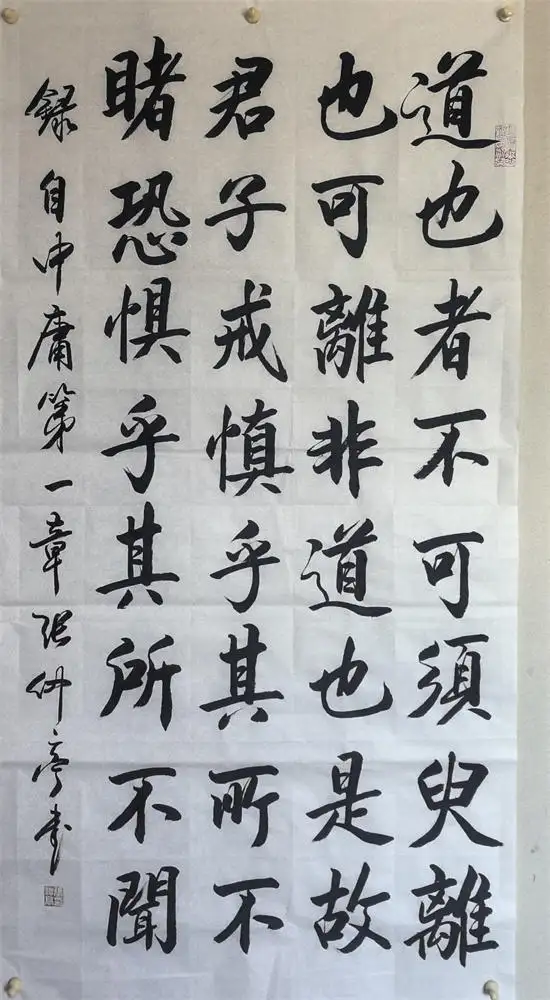 道也者不可須臾離
也可離非道也是故
君子戒慎乎其所不
睹恐懼乎其所不聞
錄自中庸第一章張仲亭書